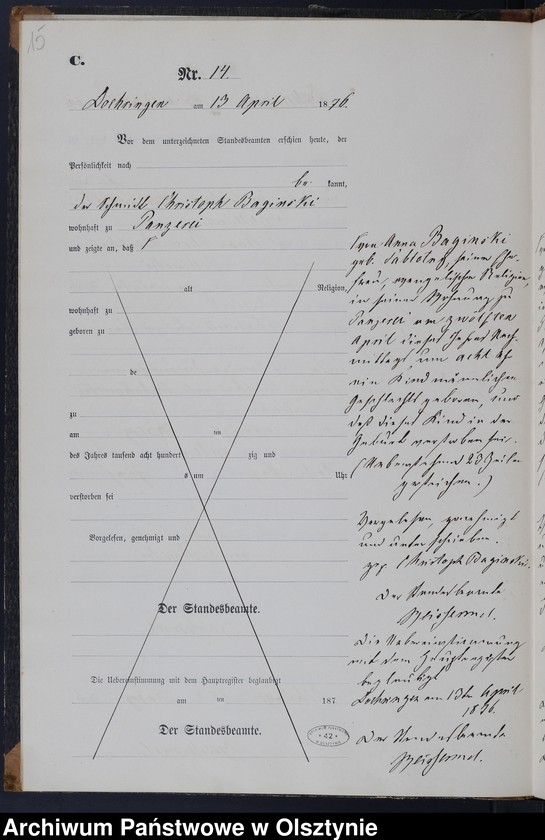 15
C.
Nr. 14.
Dochringen am 13 April 1876.
Vor dem unterzeichneten Standesbeamten erschien heute, der
Persönlichkeit nach
be kannt,
der Schmidt Christoph Baginski
wohnhaft zu Panzerei
und zeigte an, daß
alt Religion,
wohnhaft zu
geboren zu
de
zu
am ten
des Jahres tausend acht hundert zig und
s um Uhr
verstorben sei
Vorgelesen, genehmigt und
Der Standesbeamte.
Die Uebereinstimmung mit dem Hauptregister beglaubigt
am ten 187
Der Standesbeamte.
Anna Baginski
geb. Jablons, seiner Ehe-
frau, evangelischer Religion,
in seiner Wohnung zu
Panzerei am zwölften
April dieses Jahres Nach-
mittags um acht Uhr
ein Kind männlichen
Geschlechts geboren, und
daß dieses Kind in der
Geburt verstorben sei.
(Nebenstehend 23 Zeilen
gestrichen.)
Vorgelesen genehmigt
und unterschrieben.
gez. Christoph Baginski.
Der Standesbeamte
Die Uebereinstimmung
mit dem Hauptregister
beglaubigt
Dochringen am 13ten April
1876.
Der Standesbeamte
42
Archiwum Państwowe w Olsztynie